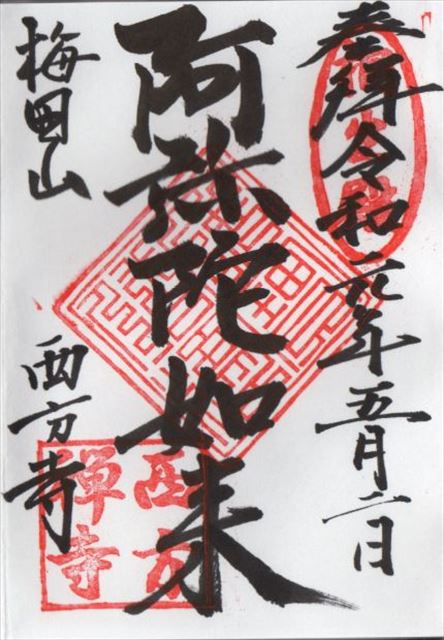 奉拝 令和元年五月二日
阿弥陀如来
梅田山
西方寺
西方
禅寺